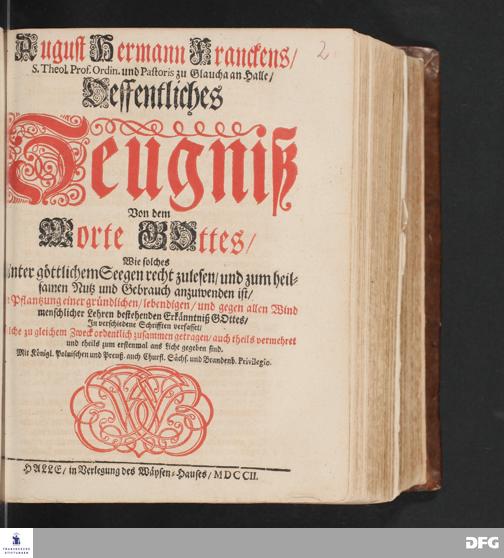 August Hermann Franckens/
S. Theol. Prof. Ordin. und Pastoris zu Glaucha an Halle/
Oeffentliches
Zeugniß
Von dem
Worte GOttes/
Wie solches
unter göttlichem Seegen recht zu lesen/ und zum heil-
samen Nutz und Gebrauch anzuwenden ist/
Pflantzung einer gründlichen/ lebendigen/ und gegen allen Wind
menschlicher Lehren bestehenden Erkänntniß GOttes/
In verschiedene Schrifften verfasset/
zu gleichem Zweck ordentlich zusammen getragen/ auch theils vermehret
und theils zum erstenmal ans Licht gegeben sind.
Mit Königl. Polnischen und Preuß. auch Churfl. Sächs. und Brandenb. Privilegio.
HALLE/ in Verlegung des Wäysen-Hauses/ MDCCII.
2
FRANCKESCHE
STIFTUNGEN
DFG